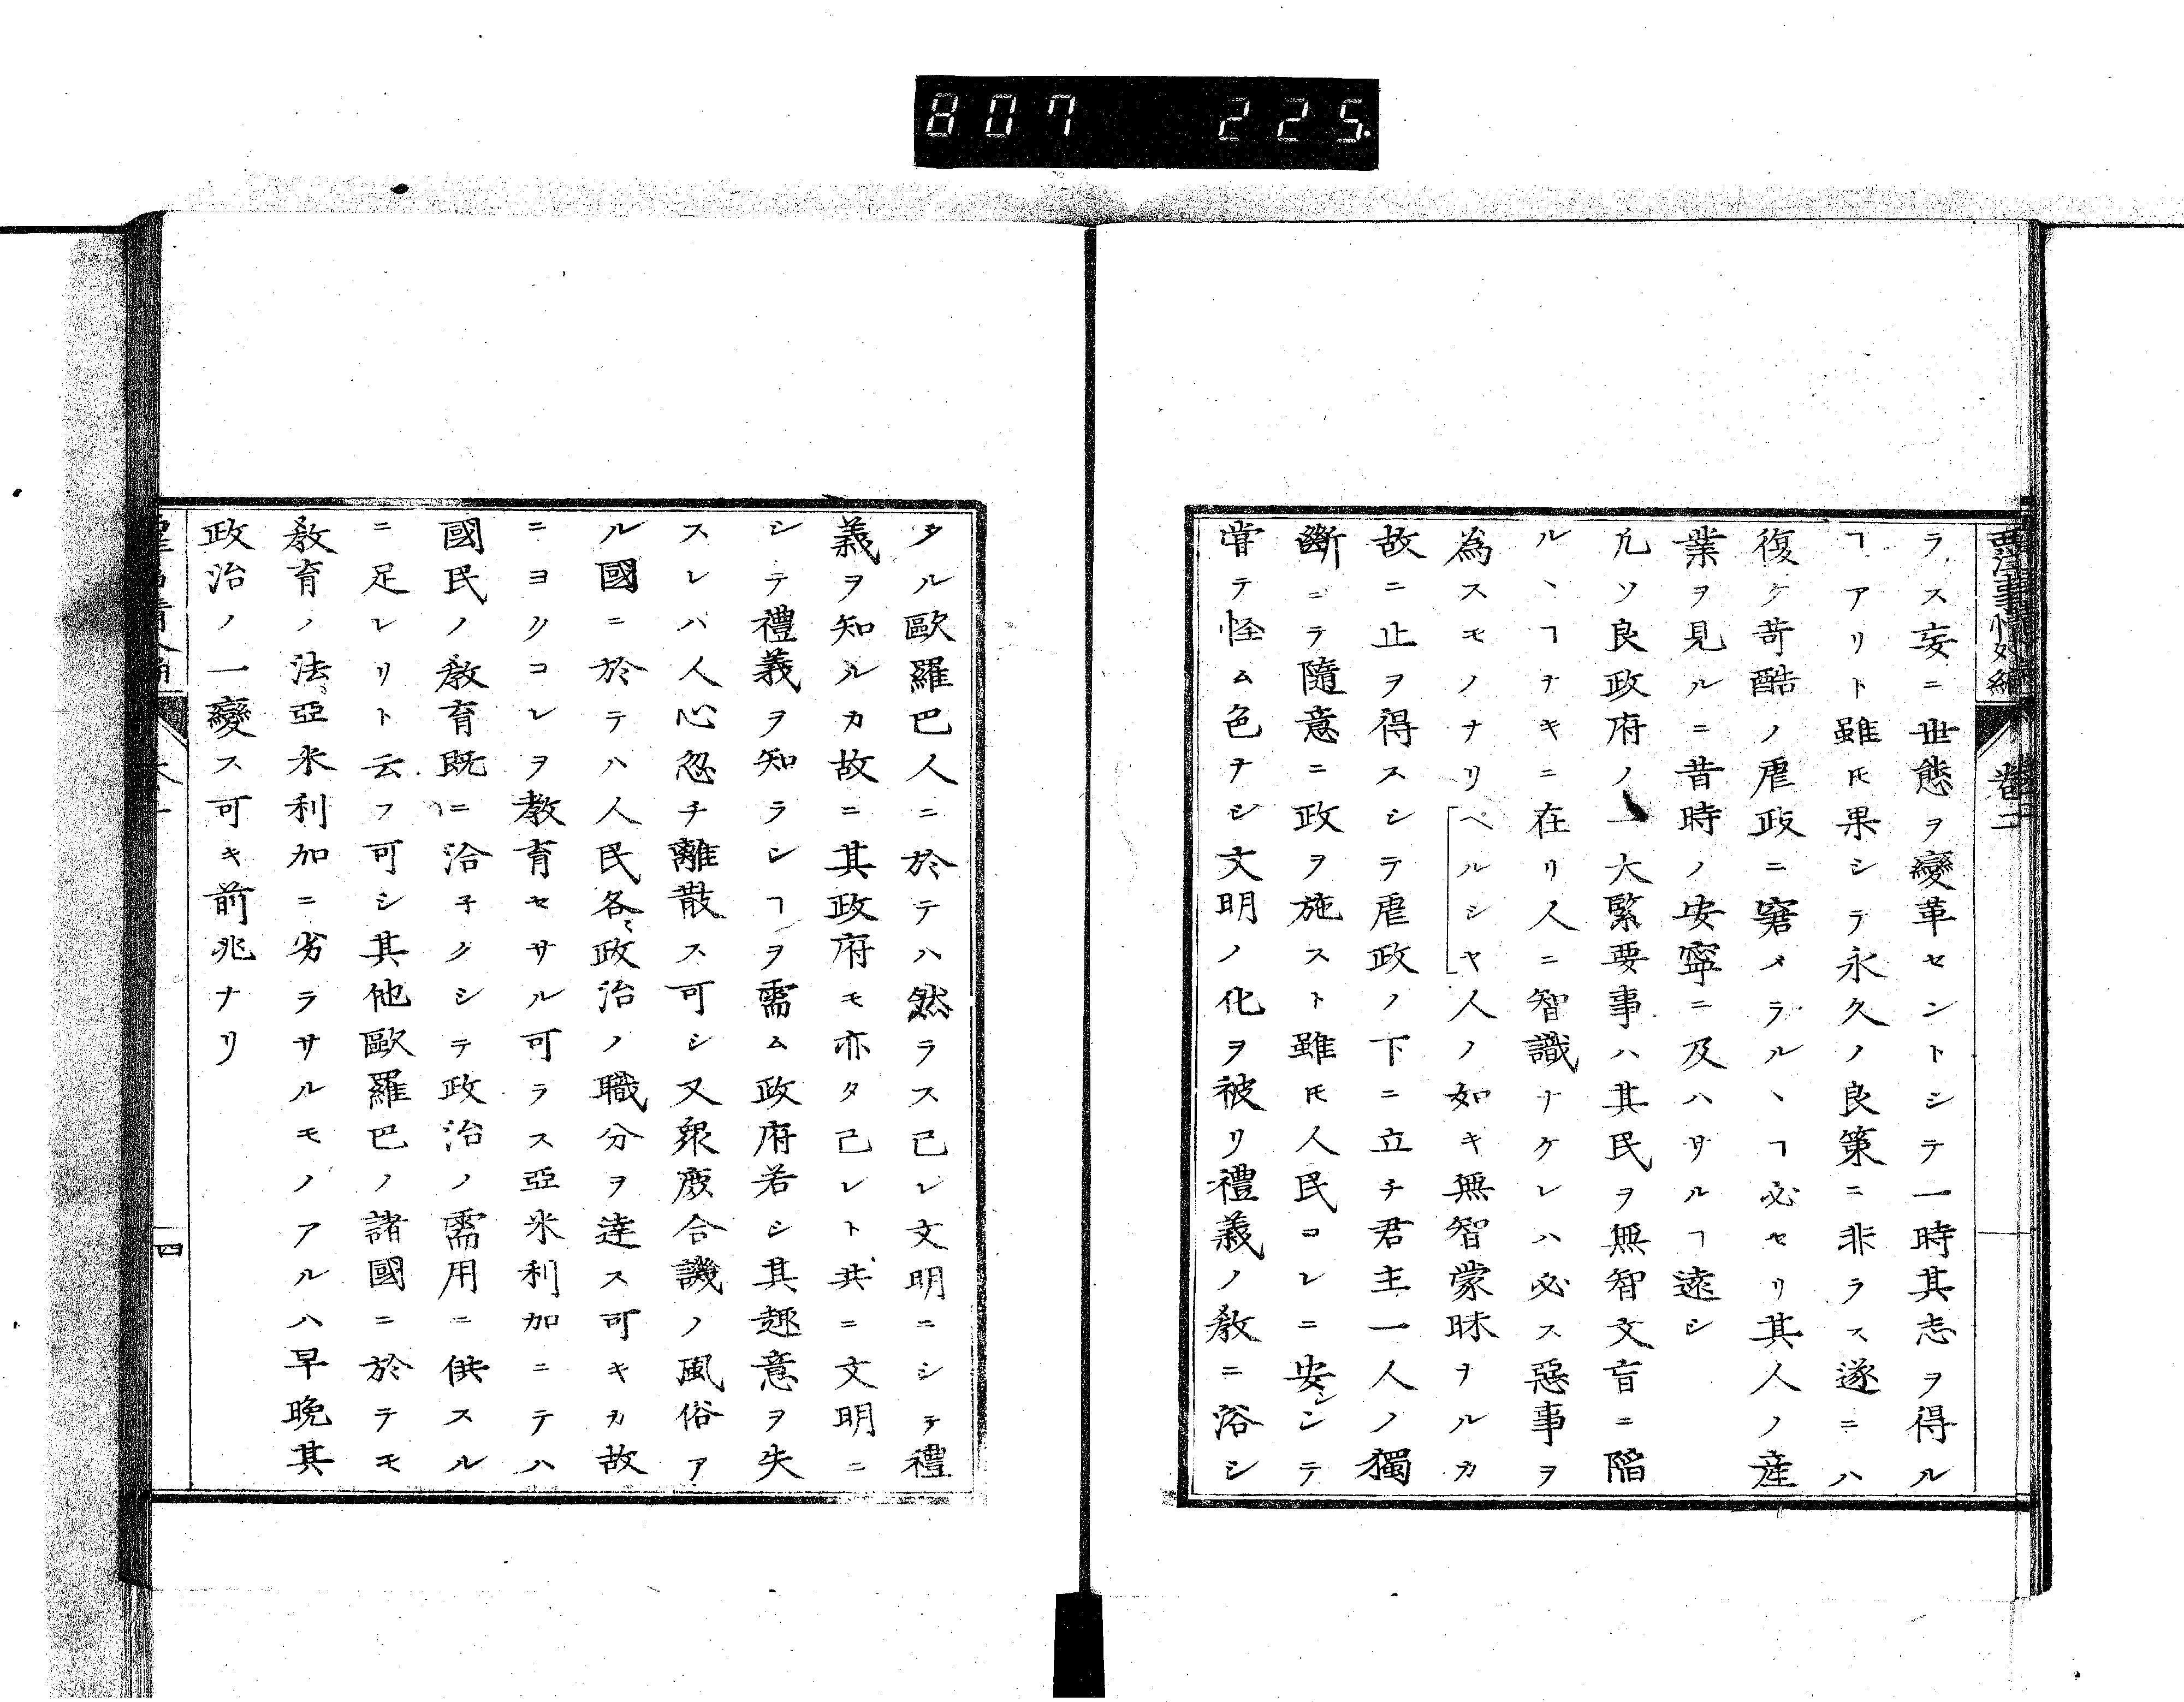 807 225.
西洋事情外編 卷二
ラス妄ニ世態ヲ變革セントシテ一時其志ヲ得ル
ヿアリト雖𪜈果シテ永久ノ良策ニ非ラス遂ニハ
復タ苛酷ノ虐政ニ窘メラルヽヿ必セリ其人ノ産
業ヲ見ルニ昔時ノ安寧ニ及ハサルヿ遠シ
凢ソ良政府ノ一大緊要事ハ其民ヲ無智文盲ニ陷
ルヽヿナキニ在リ人ニ智識ナケレハ必ス惡事ヲ
為スモノナリペルシヤ人ノ如キ無智蒙昧ナルカ
故ニ止ヲ得スシテ虐政ノ下ニ立チ君主一人ノ獨
斷ニテ隨意ニ政ヲ施スト雖𪜈人民コレニ安シンテ
甞テ怪ム色ナシ文明ノ化ヲ被リ禮義ノ敎ニ浴シ
タル歐羅巴人ニ於テハ然ラス己レ文明ニシテ禮
義ヲ知ルカ故ニ其政府モ亦タ己レト共ニ文明ニ
シテ禮義ヲ知ランヿヲ需ム政府若シ其趣意ヲ失
スレバ人心忽チ離散ス可シ又衆庻合議ノ風俗ア
ル國ニ於テハ人民各〻政治ノ職分ヲ達ス可キカ故
ニヨクコレヲ教育セサル可ラス亞米利加ニテハ
國民ノ敎育既ニ洽子クシテ政治ノ需用ニ供スル
ニ足レリト云フ可シ其他歐羅巴ノ諸國ニ於テモ
敎育ノ法亞米利加ニ劣ラサルモノアルハ早晩其
政治ノ一變ス可キ前兆ナリ
四